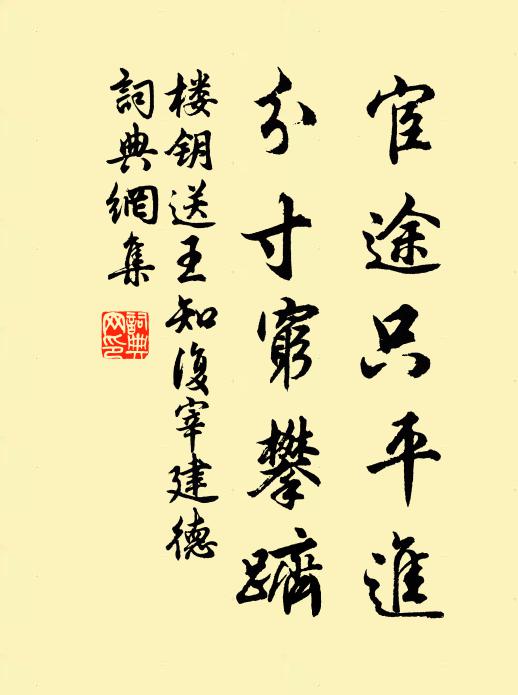 宦途只平進
分寸窮攀躋
楼钥送王知復宰建德
詞典網集
詞典網印